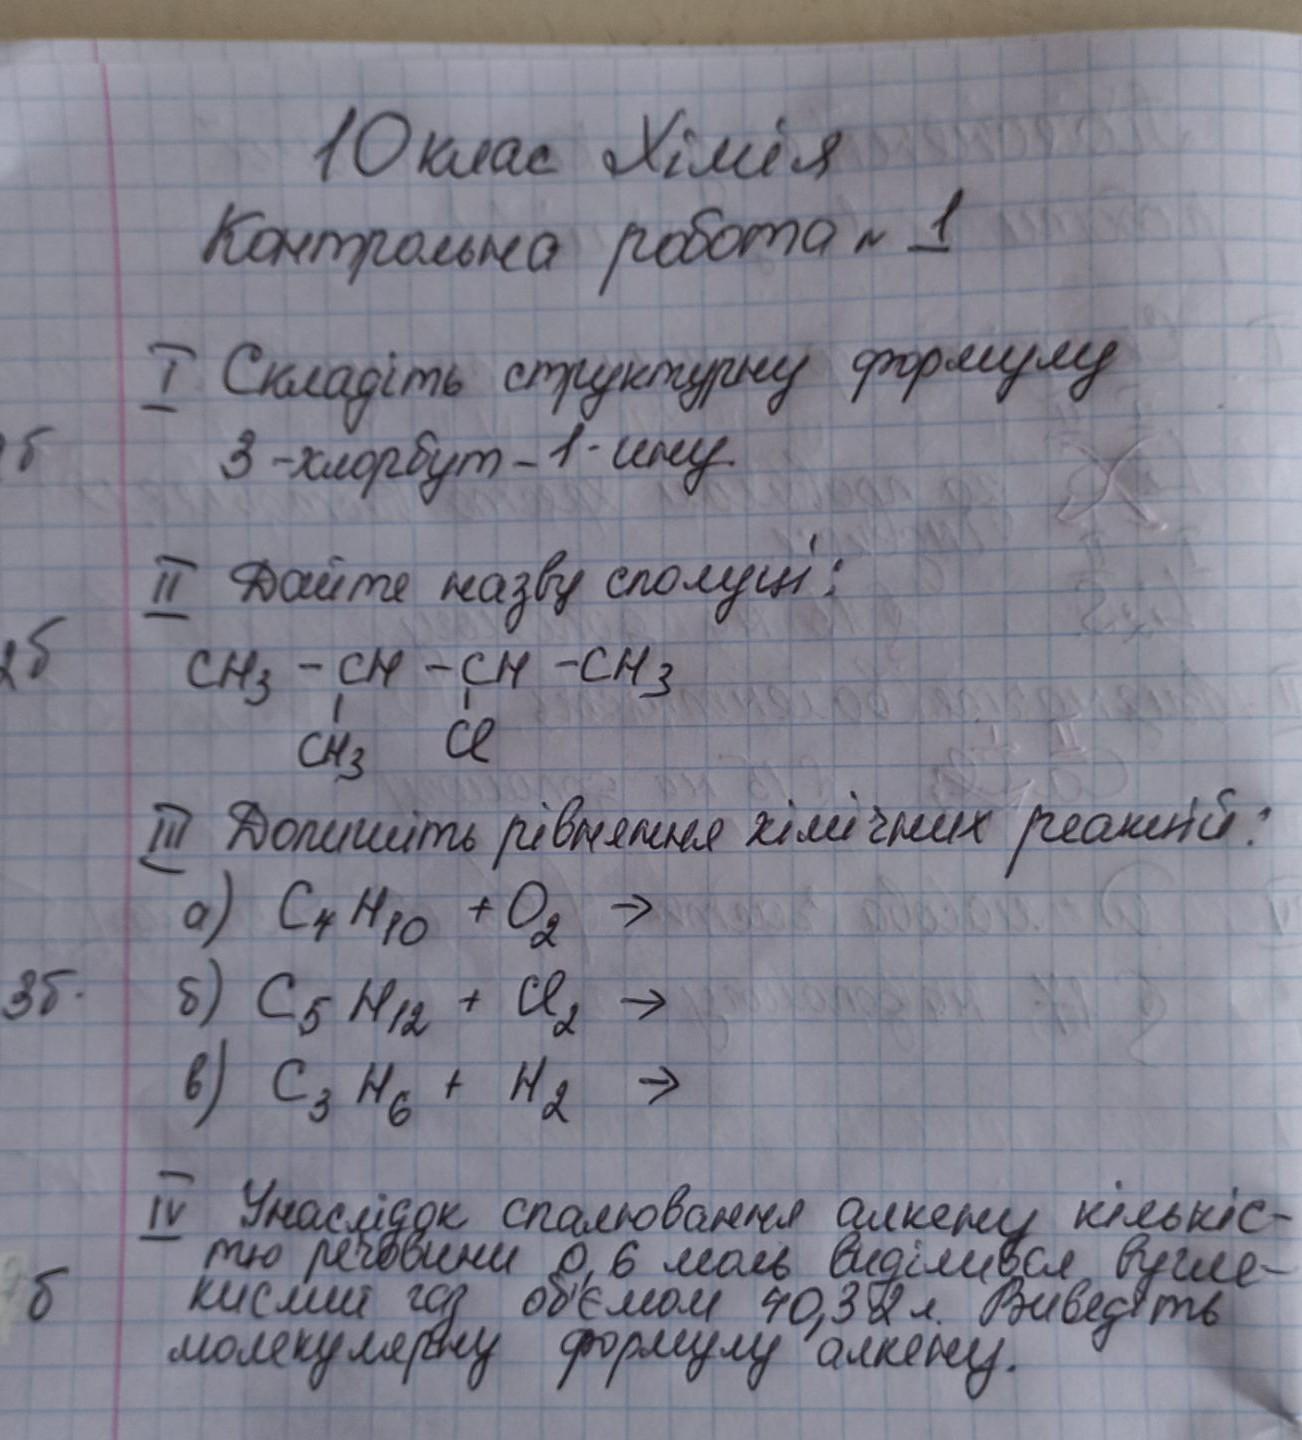 10 клас Хімія
Контрольна робота № 1
I Складіть структурну формулу
3-хлорбут-1-ину.
II Дайте назву сполуці:
2б
CH3 - CH - CH - CH3
CH3 Cl
III Допишіть рівняння хімічних реакцій:
а) C4H10 + O2 →
3б. б) C5H12 + Cl2 →
в) C3H6 + H2 →
IV Унаслідок спалювання алкену кількіс-
тю речовини 0,6 моль виділився вугле-
б кислий газ об'ємом 40,32 л. Виведіть
молекулярну формулу алкену.